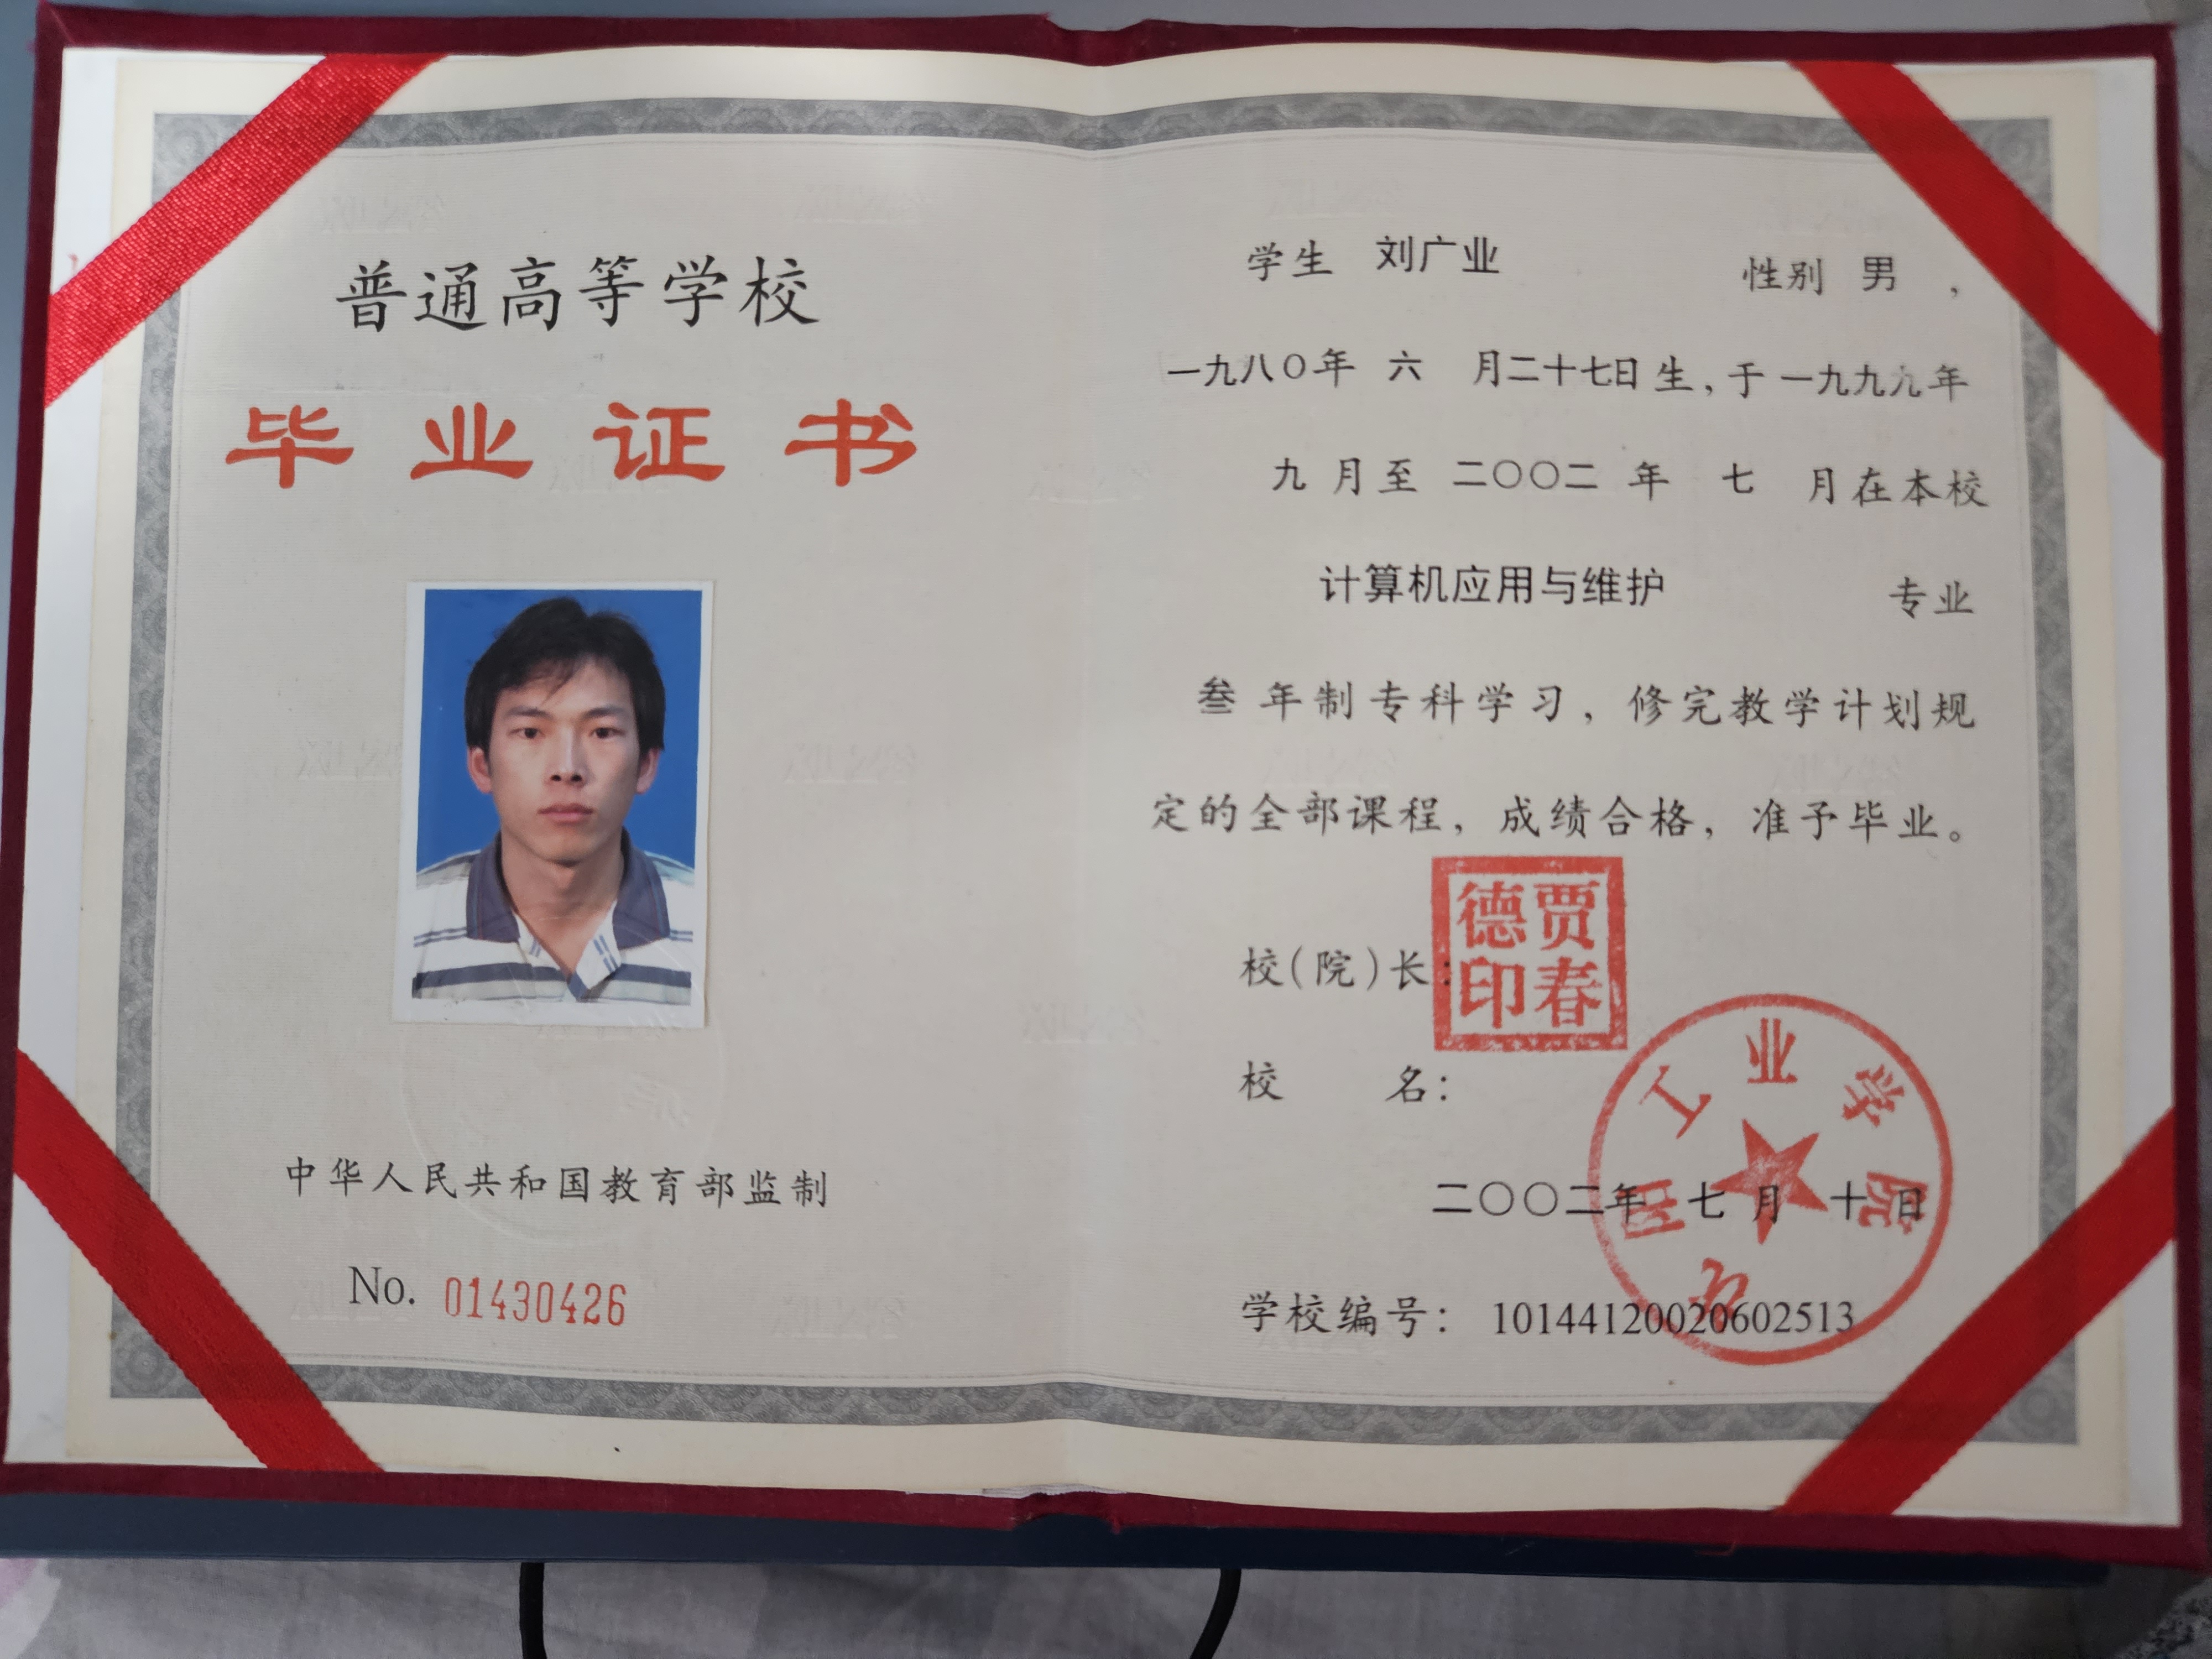 普通高等学校
毕业证书
中华人民共和国教育部监制
No. 01430426
学生 刘广业 性别 男 ，
一九八〇年 六 月二十七日生，于一九九九年
九 月至 二〇〇二 年 七 月在本校
计算机应用与维护 专业
叁 年制专科学习，修完教学计划规
定的全部课程，成绩合格，准予毕业。
校（院）长：
贾春德印
校 名：
工业学院
二〇〇二年 七 月 十 日
学校编号： 10144120020602513